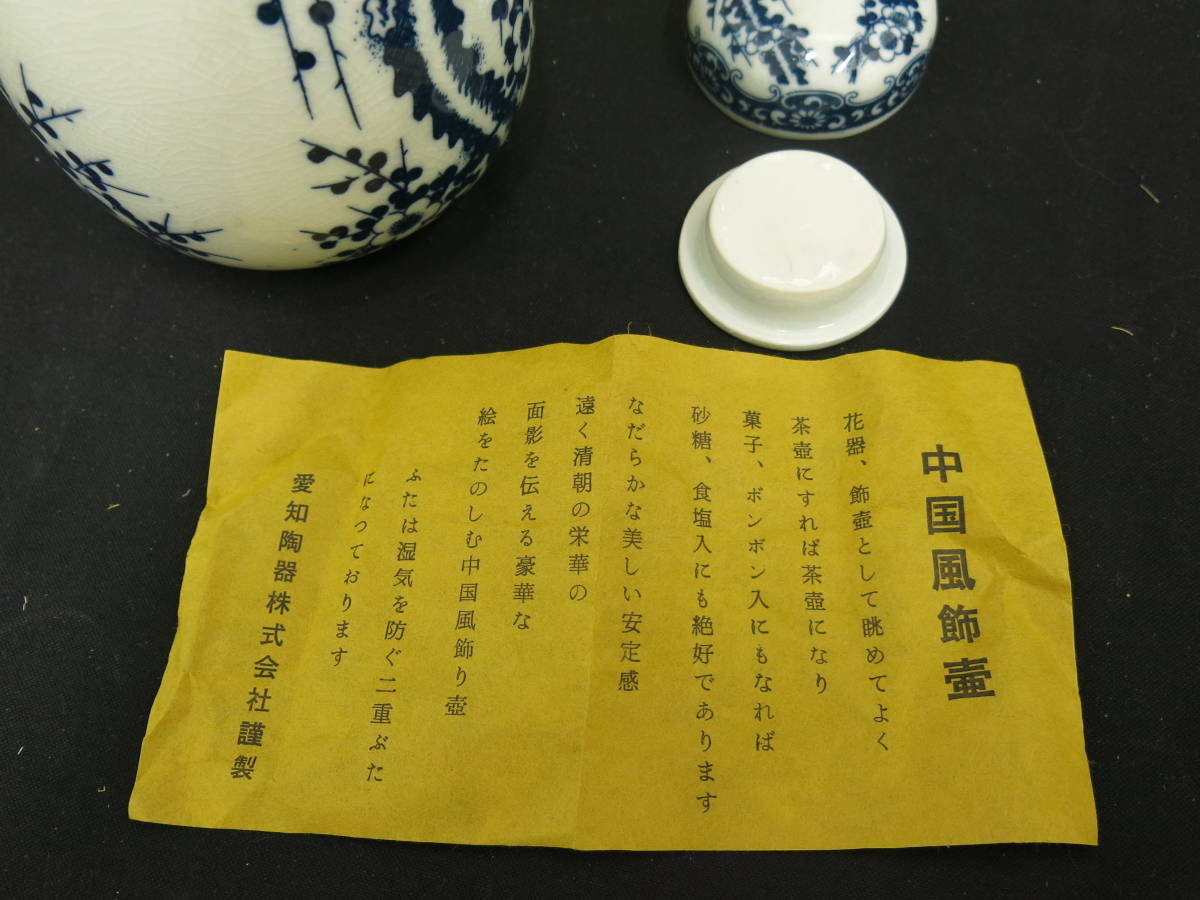 中国風飾壷
花器、飾壺として眺めてよく
茶壺にすれば茶壺になり
菓子、ボンボン入にもなれば
砂糖、食塩入にも絶好であります
なだらかな美しい安定感
遠く清朝の栄華の
面影を伝える豪華な
絵をたのしむ中国風飾り壺
ふたは湿気を防ぐ二重ぶた
になつております
愛知陶器株式会社謹製